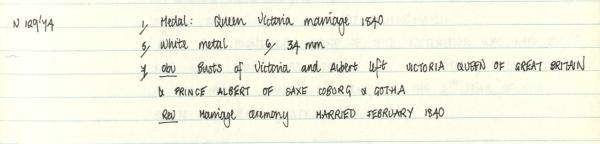 N 129'74 1, Medal: Queen Victoria marriage 1840
5, White metal 6, 34 mm
7, obv Busts of Victoria and Albert left VICTORIA QUEEN OF GREAT BRITAIN
& PRINCE ALBERT OF SAXE COBURG & GOTHA
Rev Marriage ceremony MARRIED FEBRUARY 1840